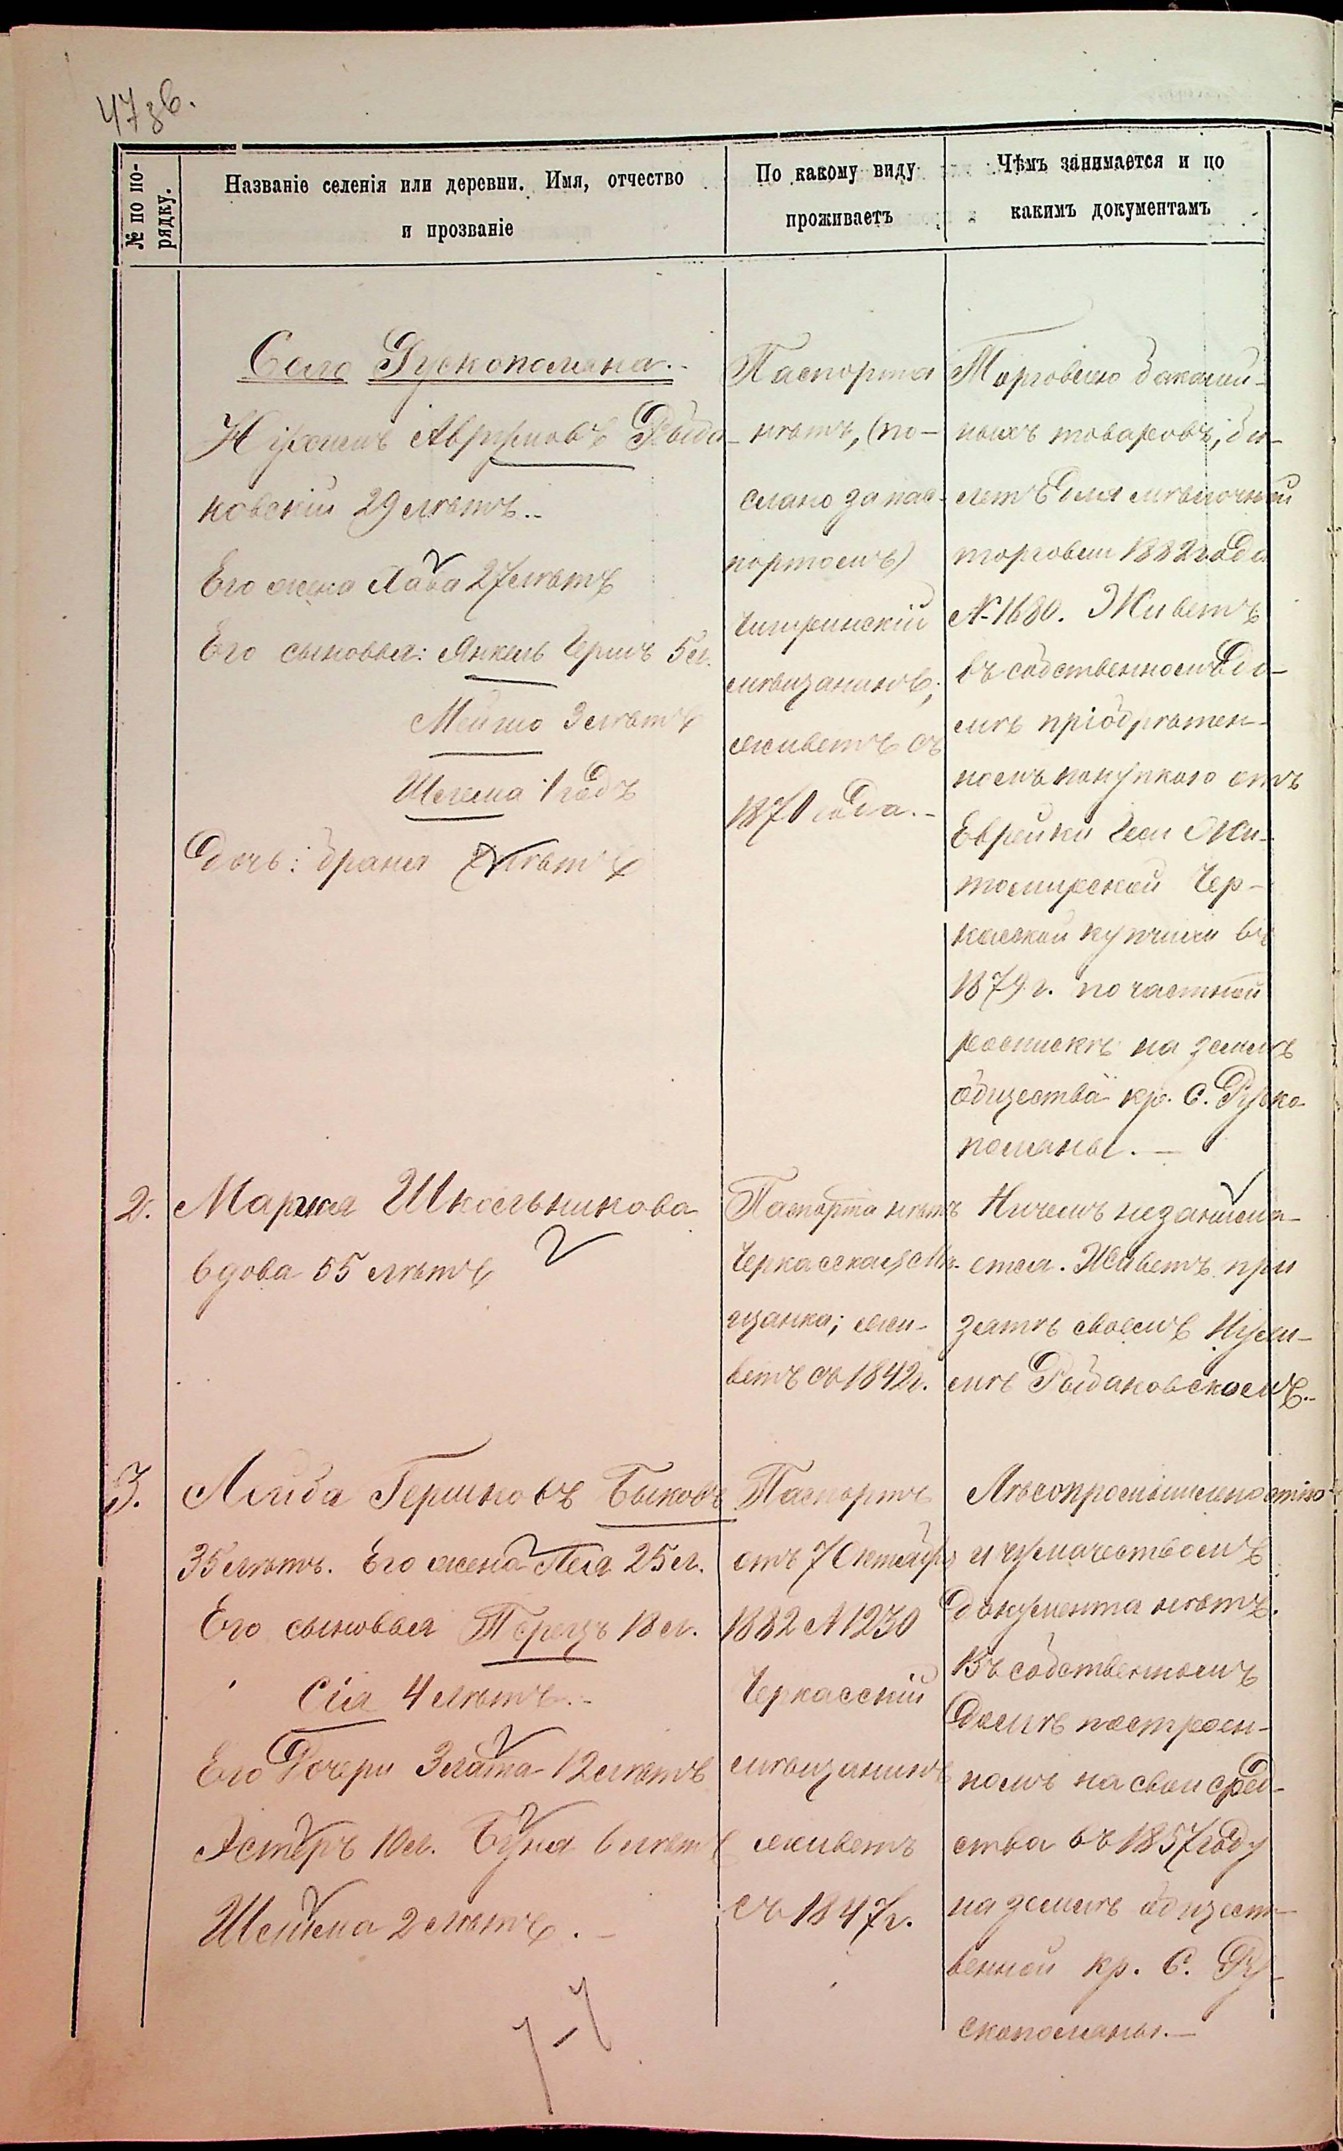 47 зв.
№ по по-
рядку.
Названіе селенія или деревни. Имя, отчество
и прозваніе
По какому виду
проживаетъ
Чѣмъ занимается и по
какимъ документамъ
Село Рускополяна.
Нухимъ Аврумовъ Рыба-
ковскій 29 лѣтъ.
Его жена Хава 27 лѣтъ
Его сыновья: Янкель Гершъ 5 л.
Мейшо 3 лѣтъ
Шлема 1 годъ
Дочь: Браня лѣтъ
Паспорта
нѣтъ, (по-
слано за пас-
портомъ)
Чигиринскій
мѣщанинъ;
живетъ съ
1870 года.
Торговлею бакалей-
ныхъ товаровъ, би-
летъ для мѣлочной
торговли 1882 года
№ 1680. Живетъ
въ собственномъ до-
мѣ пріобрѣтен-
номъ покупкою отъ
Еврейки Жи-
томирской Чер-
каской купчихи въ
1879 г. по частной
роспискѣ на землѣ
общества кр. С. Руско-
поляны.
2. Мария Школьникова
вдова 55 лѣтъ
Паспорта нѣтъ
Черкасская мѣ-
щанка; жи-
ветъ съ 1842 г.
Ничемъ незанимае-
тся. Живетъ при
зятѣ своемъ Нухи-
мѣ Рыбаковскомъ.
3. Лейба Гершковъ Быковъ
35 лѣтъ. Его жена Лея 25 л.
Его сыновья Перецъ 18 л.
Сія 4 лѣтъ.
Его дочери Злата 12 лѣтъ
Эстеръ 10 л. Буня 6 лѣтъ
Шейма 2 лѣтъ.
Паспортъ
отъ 7 Октября
1882 № 1230
Черкасскій
мѣщанинъ
живетъ
съ 1847 г.
Лѣсопромышленностію
и чумачествомъ
документа нѣтъ.
Въ собственномъ
домѣ построен-
номъ на свои сред-
ства въ 1857 году
на землѣ общест-
венной кр. С. Ру-
скополяны.